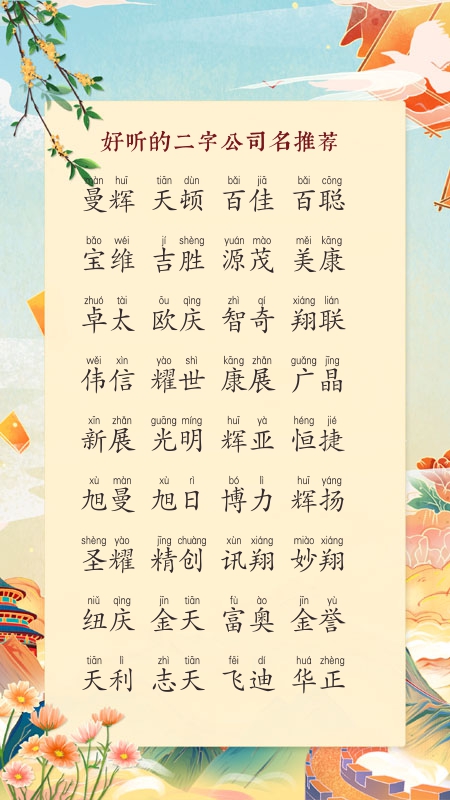 好听的二字公司名推荐
màn huī tiān dùn bǎi jiā bǎi cōng
曼辉 天顿 百佳 百聪
bǎo wéi jí shèng yuán mào měi kāng
宝维 吉胜 源茂 美康
zhuó tài ōu qìng zhì qí xiáng lián
卓太 欧庆 智奇 翔联
wěi xìn yào shì kāng zhǎn guǎng jīng
伟信 耀世 康展 广晶
xīn zhǎn guāng míng huī yà héng jié
新展 光明 辉亚 恒捷
xù màn xù rì bó lì huī yáng
旭曼 旭日 博力 辉扬
shèng yào jīng chuàng xùn xiáng miào xiáng
圣耀 精创 讯翔 妙翔
niǔ qìng jīn tiān fù ào jīn yù
纽庆 金天 富奥 金誉
tiān lì zhì tiān fēi dí huá zhèng
天利 志天 飞迪 华正